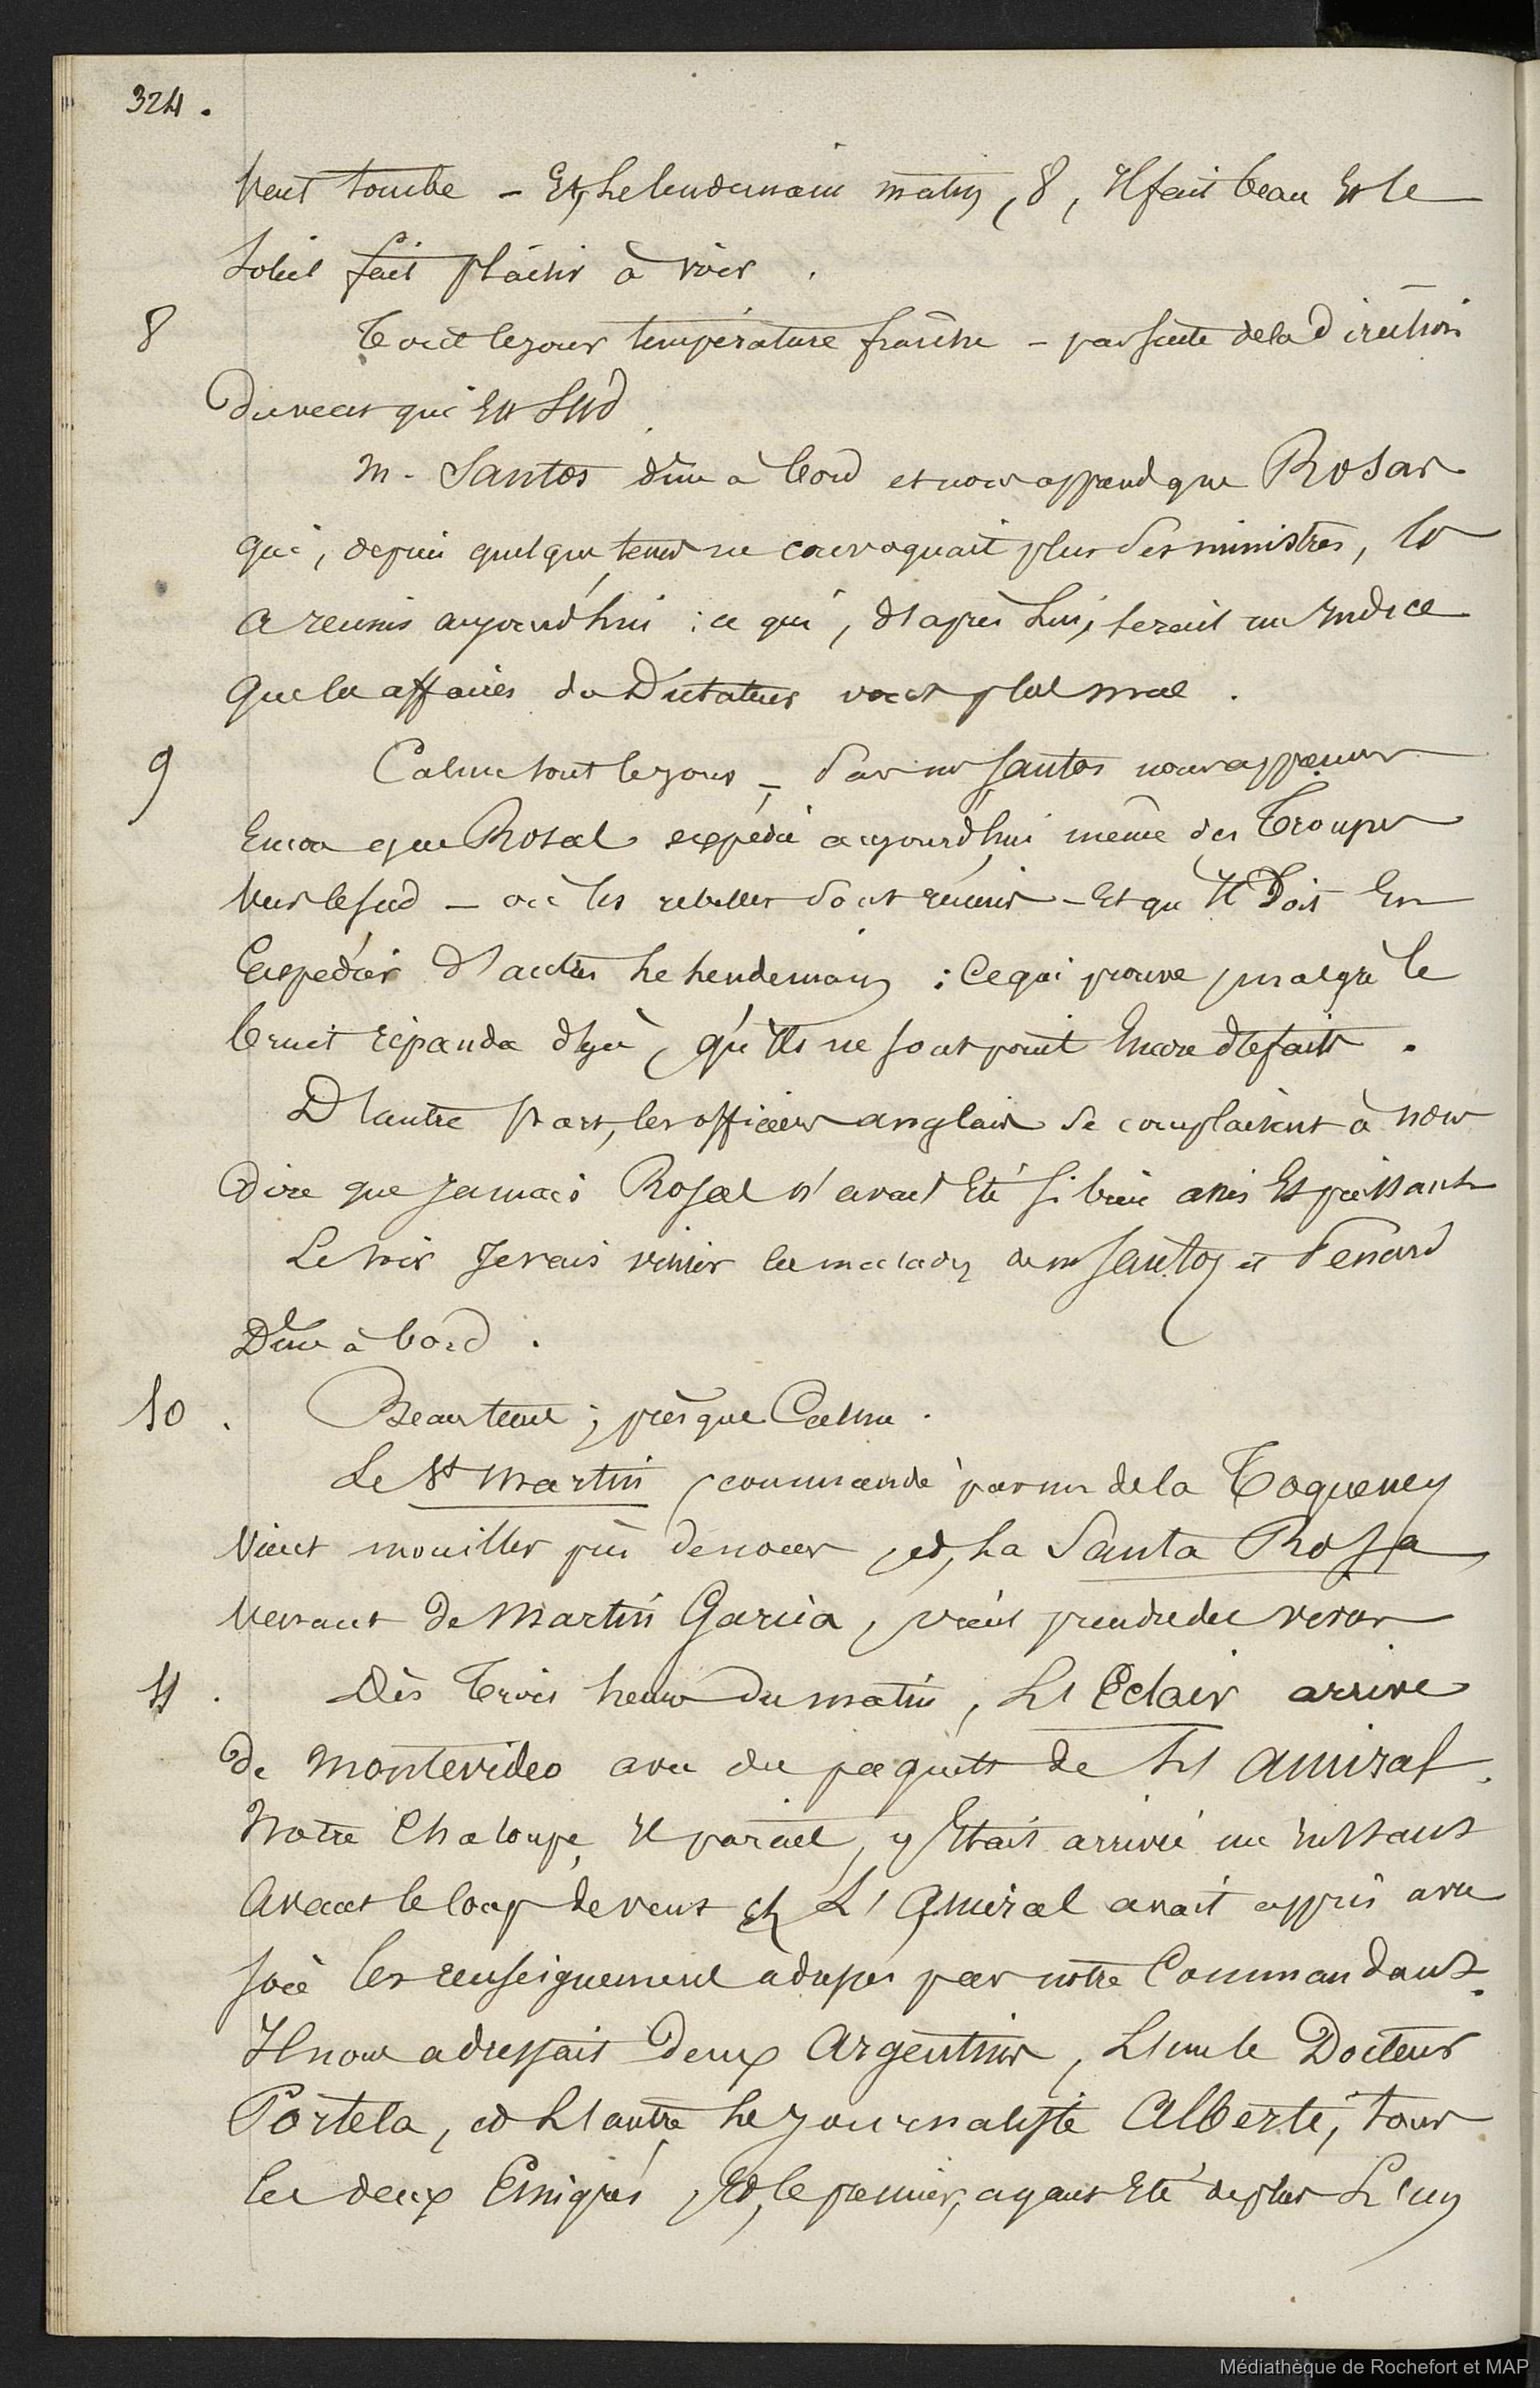 324.
Vent tombe - Et, Le lendemain matin, 8, Il fait beau Et le
Soleil fait plaisir à voir.
8 Tout le jour température fraîche - par suite de la direction
Du vent qui Est Sud
M. Santos dine à bord et nous apprend que Rosas
qui, depuis quelque tems ne convoquait plus ses ministres, les
a reunis aujourd'hui : ce qui, d'après Lui, serait un Indice
Que les affaires du Dictateur vont plus mal.
9 Calme tout le jour - Par mr Santos nous apprenons
Encore que Rosas expédie aujourd'hui même des Troupes
Vers le sud - où les rebelles sont réunis - Et qu'Il Doit En
Expédier d'autres Le Lendemain : Ce qui prouve, malgré le
bruit répandu déjà, qu'Ils ne sont point Encore défaits.
D'autre part, les officiers anglais se complaisent à nous
dire que jamais Rosas n'avait Eté si bien assis Et puissant
Le soir Je vais visiter les malades de mr Santos et Penard
Dine à bord.
10. Beau tems ; presque Calme.
Le St Martin, commandé par mr de la Tocqueney
Vient mouiller près de nous, et, La Santa Rosa,
Venant de Martin Garcia, vient prendre des vivres
11. Dès Trois heures du matin, L'Eclair arrive
de Montevideo avec des paquets de L'amiral.
Notre Chaloupe, Il parait, y Etait arrivée un Instant
Avant le coup de vent Et L'Amiral avait appris avec
joie les renseignements adressés par notre Commandant.
Il nous adressait Deux Argentins, L'un le Docteur
Portela, et L'autre Le journaliste Alberti, tous
les deux Emigrés, Et, le premier, ayant Eté de plus L'un